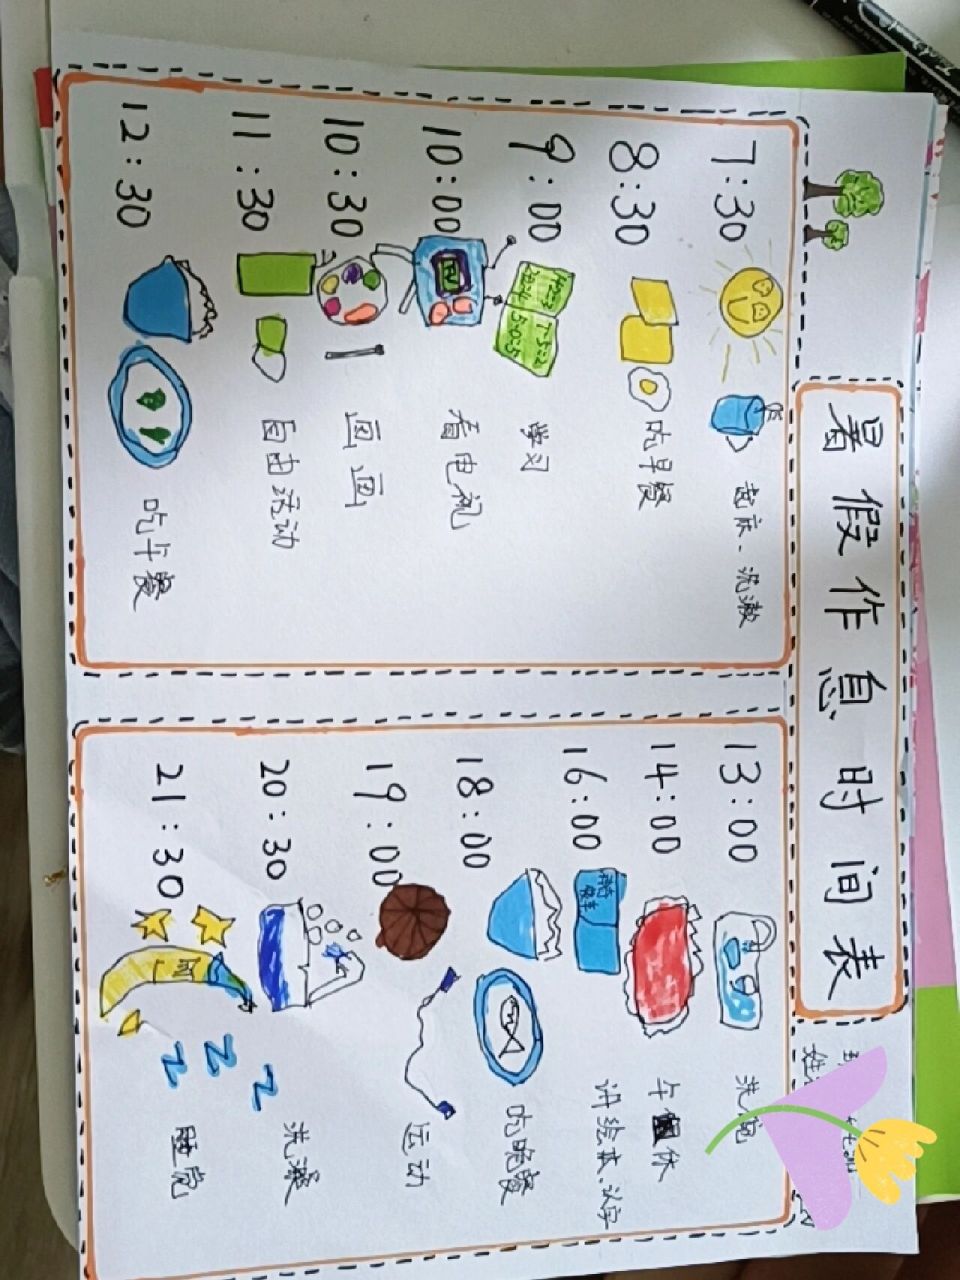 暑假作息时间表
姓
7:30 起床、洗漱
8:30 吃早餐
9:00 7-5=2 5-0=5 学习
10:00 TV 看电视
10:30 画画
11:30 自由活动
12:30 吃午餐
13:00 洗碗
14:00 午休
16:00 讲绘本、认字
18:00 吃晚餐
19:00 运动
20:30 洗澡
21:30 z z z 睡觉